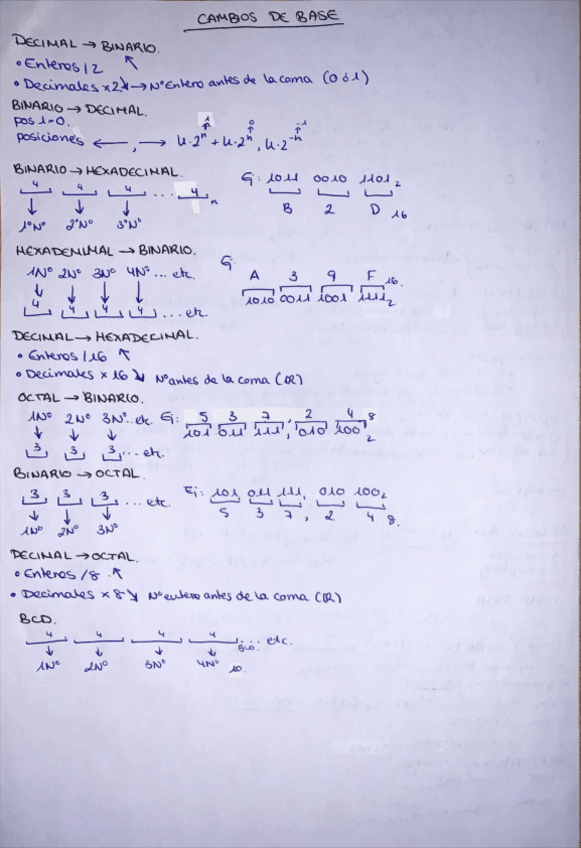 CAMBIOS DE BASE
DECIMAL → BINARIO.
• Enteros /2 ↖
• Decimales x2 ↘ → Nº Entero antes de la coma (0 ó 1)
BINARIO → DECIMAL.
pos 1=0.
posiciones ← , →
BINARIO → HEXADECIMAL.
4 4 4 ... 4 n
1ºNº 2ºNº 3ºNº
Ej: 1011 0010 1101 2
B 2 D 16
HEXADEMIMAL → BINARIO.
1Nº 2Nº 3Nº 4Nº ... etc.
4 4 4 4 ... etc.
Ej:
A 3 9 F 16.
1010 0011 1001 1111 2
DECIMAL → HEXADECIMAL.
• Enteros /16 ↖
• Decimales x 16 ↘ Nº antes de la coma (ℝ)
OCTAL → BINARIO.
1Nº 2Nº 3Nº... etc.
3 3 3,... etc.
Ej: 5 3 7, 2 4 8
101 011 111, 010 100 2
BINARIO → OCTAL.
3 3 3 ... etc.
1Nº 2Nº 3Nº
Ej: 101 011 111, 010 100 2
5 3 7, 2 4 8.
DECIMAL → OCTAL.
• Enteros /8 ↖
• Decimales x 8 ↘ Nº entero antes de la coma (ℝ)
BCD.
4 4 4 4 BCD ... etc.
1Nº 2Nº 3Nº 4Nº 10.